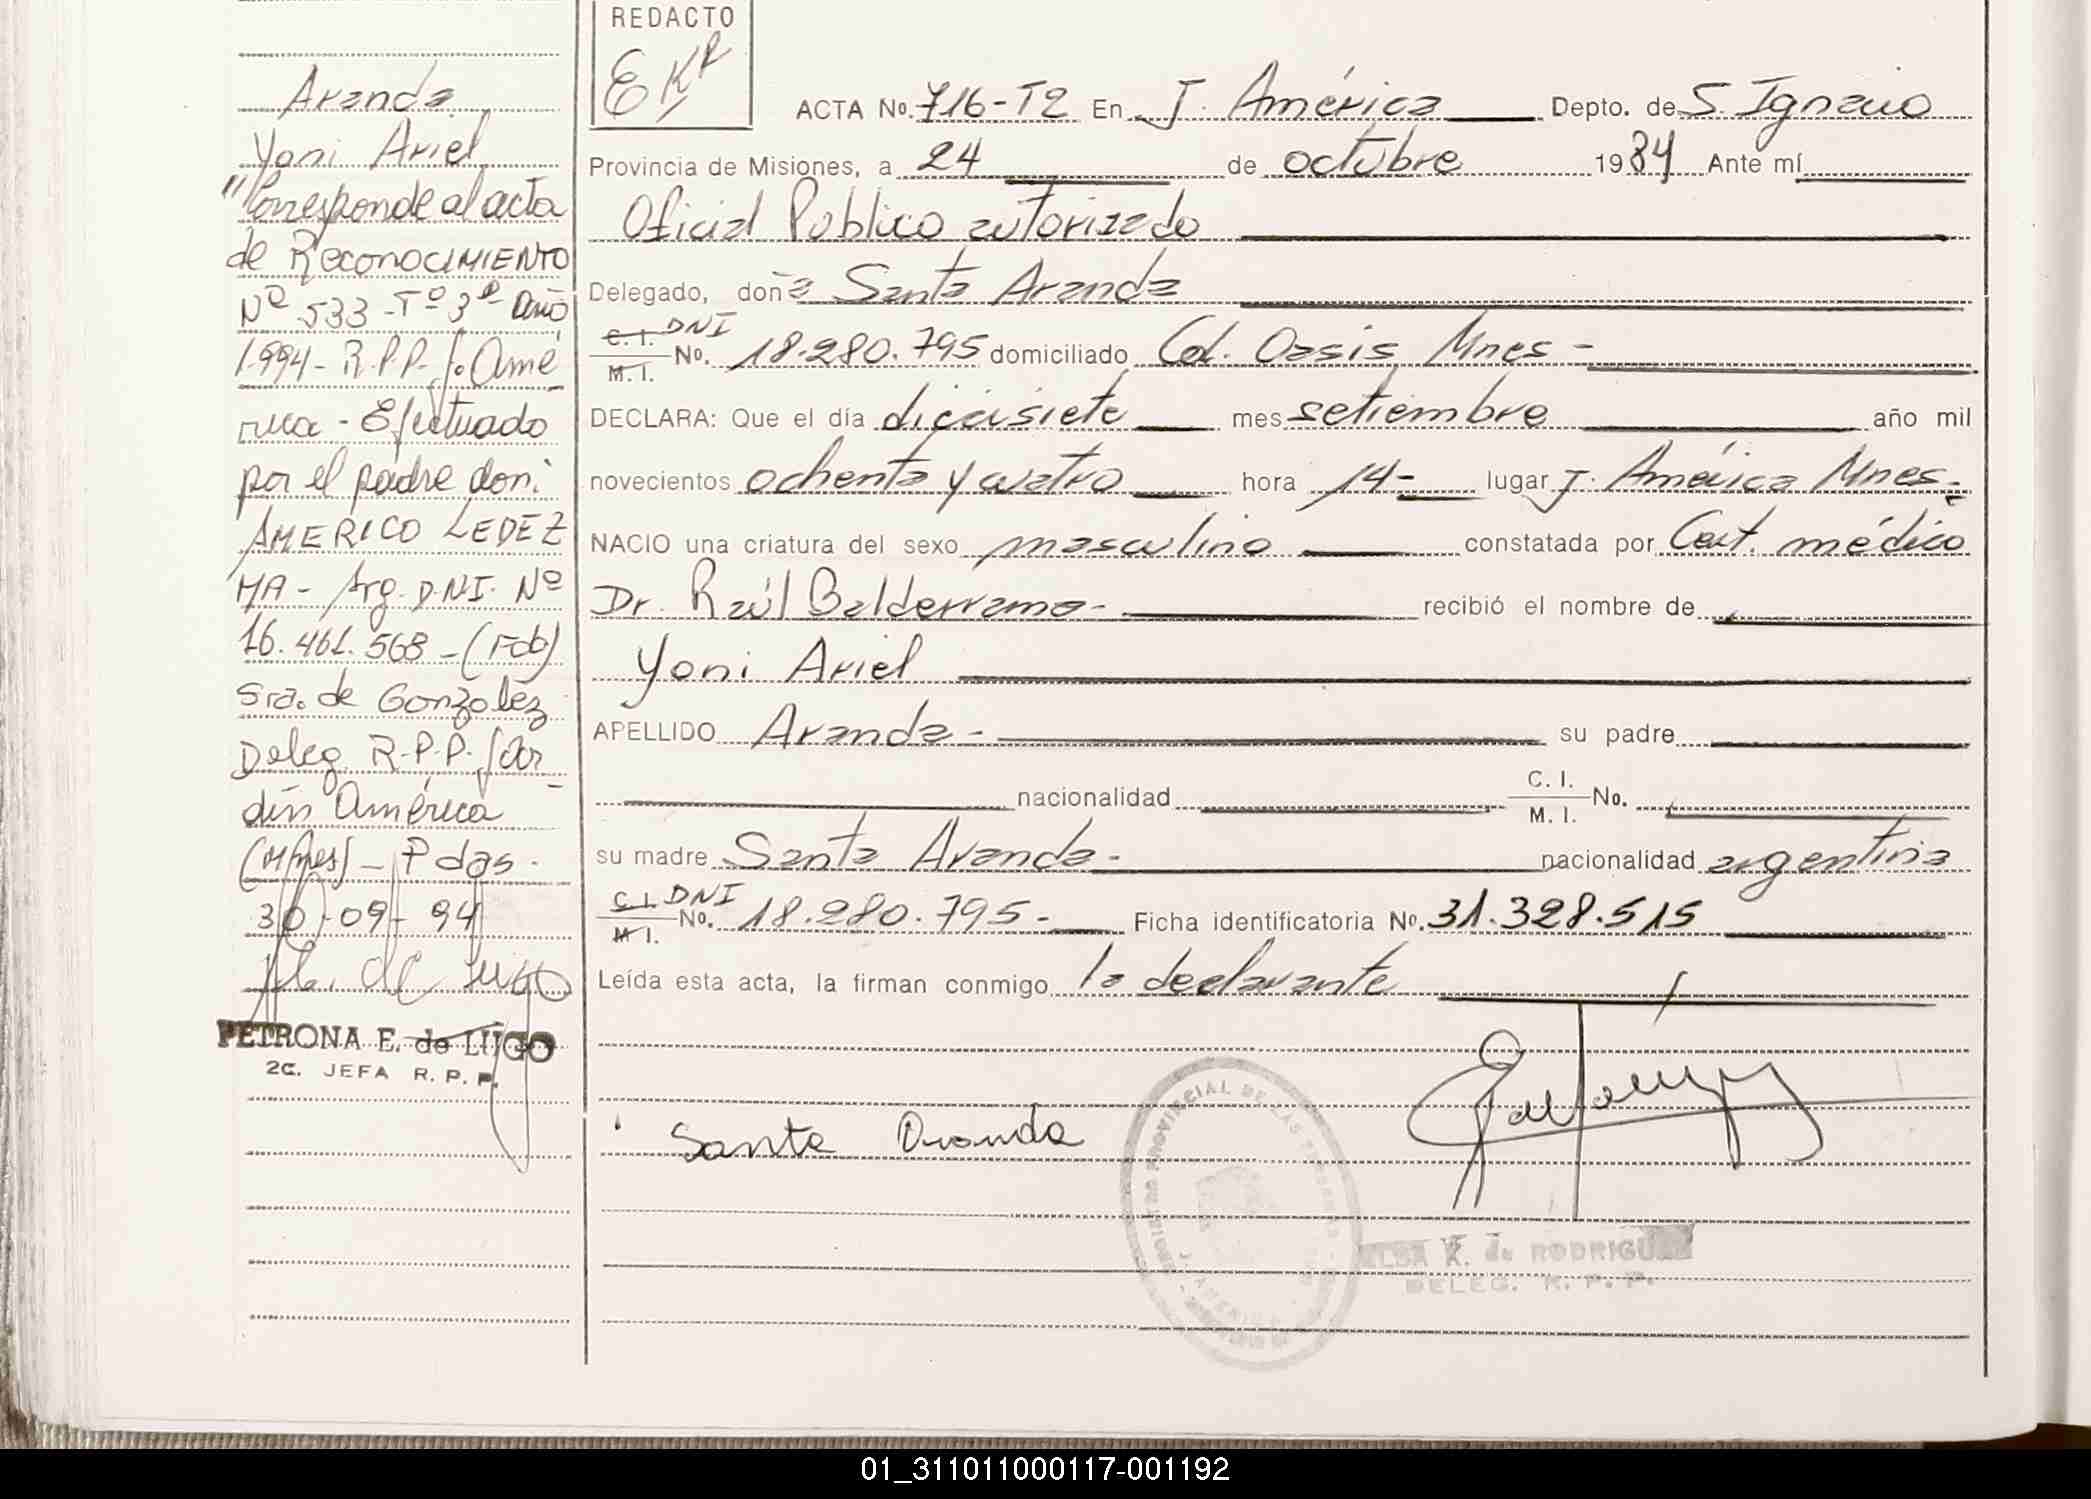 REDACTO
EKR
Aranda
Yoni Ariel
"Corresponde al acta
de RECONOCIMIENTO
Nº 533 - Tº 3º - Año
1.994 - R.P.P. J. Amé
rica - Efectuado
por el padre don:
AMERICO LEDEZ
MA - Arg. D.N.I. Nº
16.461.568 - (Fdo)
Sra. de Gonzolez
Deleg. R.P.P. Jar
dín América
(Mnes) - Pdas.
30-09-94
PETRONA E. de LUGO
2C. JEFA R. P. P.
ACTA No. 716-T2 En J. América Depto. de S. Ignacio
Provincia de Misiones, a 24 de octubre 1984 Ante mí
Oficial Público autorizado
Delegado, doña Santa Aranda
C. I. DNI
M. I. No. 18.280.795 domiciliado Col. Oasis Mnes -
DECLARA: Que el día diecisiete mes setiembre año mil
novecientos ochenta y cuatro hora 14- lugar J. América Mnes.-
NACIO una criatura del sexo masculino constatada por Cert. médico
Dr. Raúl Balderrama- recibió el nombre de
Yoni Ariel
APELLIDO Aranda- su padre
nacionalidad C. I. M. I. No.
su madre Santa Aranda- nacionalidad argentina
C. I. DNI
M I. No. 18.280.795- Ficha identificatoria No. 31.328.515
Leída esta acta, la firman conmigo la declarante
Santa Aranda
ELSA K. de RODRIGUEZ
DELEG. R. P. P.
01_311011000117-001192